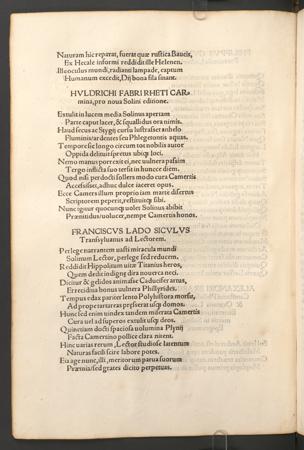 Naturam hic reparat, fuerat quæ rustica Baucis,
Ex Hecale informi reddidit ille Helenen.
Ille oculus mundi, radianti lampade, captum
Humanum excedit, Dij bona fila sinant.
HVLDRICHI FABRI RHETI CAR
mina, pro noua Solini editione.
Extulit in lucem media Solinus apertam
Parte caput lacer, & squallidus ora nimis.
Haud secus ac Stygij cursu lustrasset anhelo
Flumina ardentes seu Phlegetontis aquas.
Tempore sic longo circum tot nobilis autor
Oppida delituit spretus ubiq; loci.
Nemo manus porrexit ei, nec uulnera passim
Tergo inflicta suo tersit in hunc diem.
Quod nisi perdocti sollers modo cura Camertis
Accessisset, adhuc dulce iaceret opus.
Ecce Camers illum proprio iam marte disertus
Scriptorem peperit, restituitq; sibi.
Nunc igitur quocunq; uolet Solinus abibit
Præ nitidus / uoluerc, nempe Camertis honos.
FRANCISCVS LADO SICVLVS
Transyluanus ad Lectorem.
Perlege narrantem uasti miracula mundi
Solinum Lector, perlege sed reducem.
Reddidit Hippolitum uitæ Titanius heros,
Quem dedit indigne dira nouerca neci.
Dicitur & gelidos animasse Ceducifer artus,
Et recidiua bonus uulnera Phillyrides.
Tempus edax pariter lento Polyhistora morsu,
Ad properatas preserat usq; domos.
Hunc sed enim uindex tandem miserata Camertis
Cura uel ad superos extulit usq; deos.
Quinetiam docti spaciosa uolumina Plynij
Facta Camertino pollice clara nitent.
Hinc uarias rerum, Lector studiose latentum
Naturas facili scire labore potes.
Eia age nunc, illi, meritorum parua suorum
Præmia / sed grates dicito perpetuas.